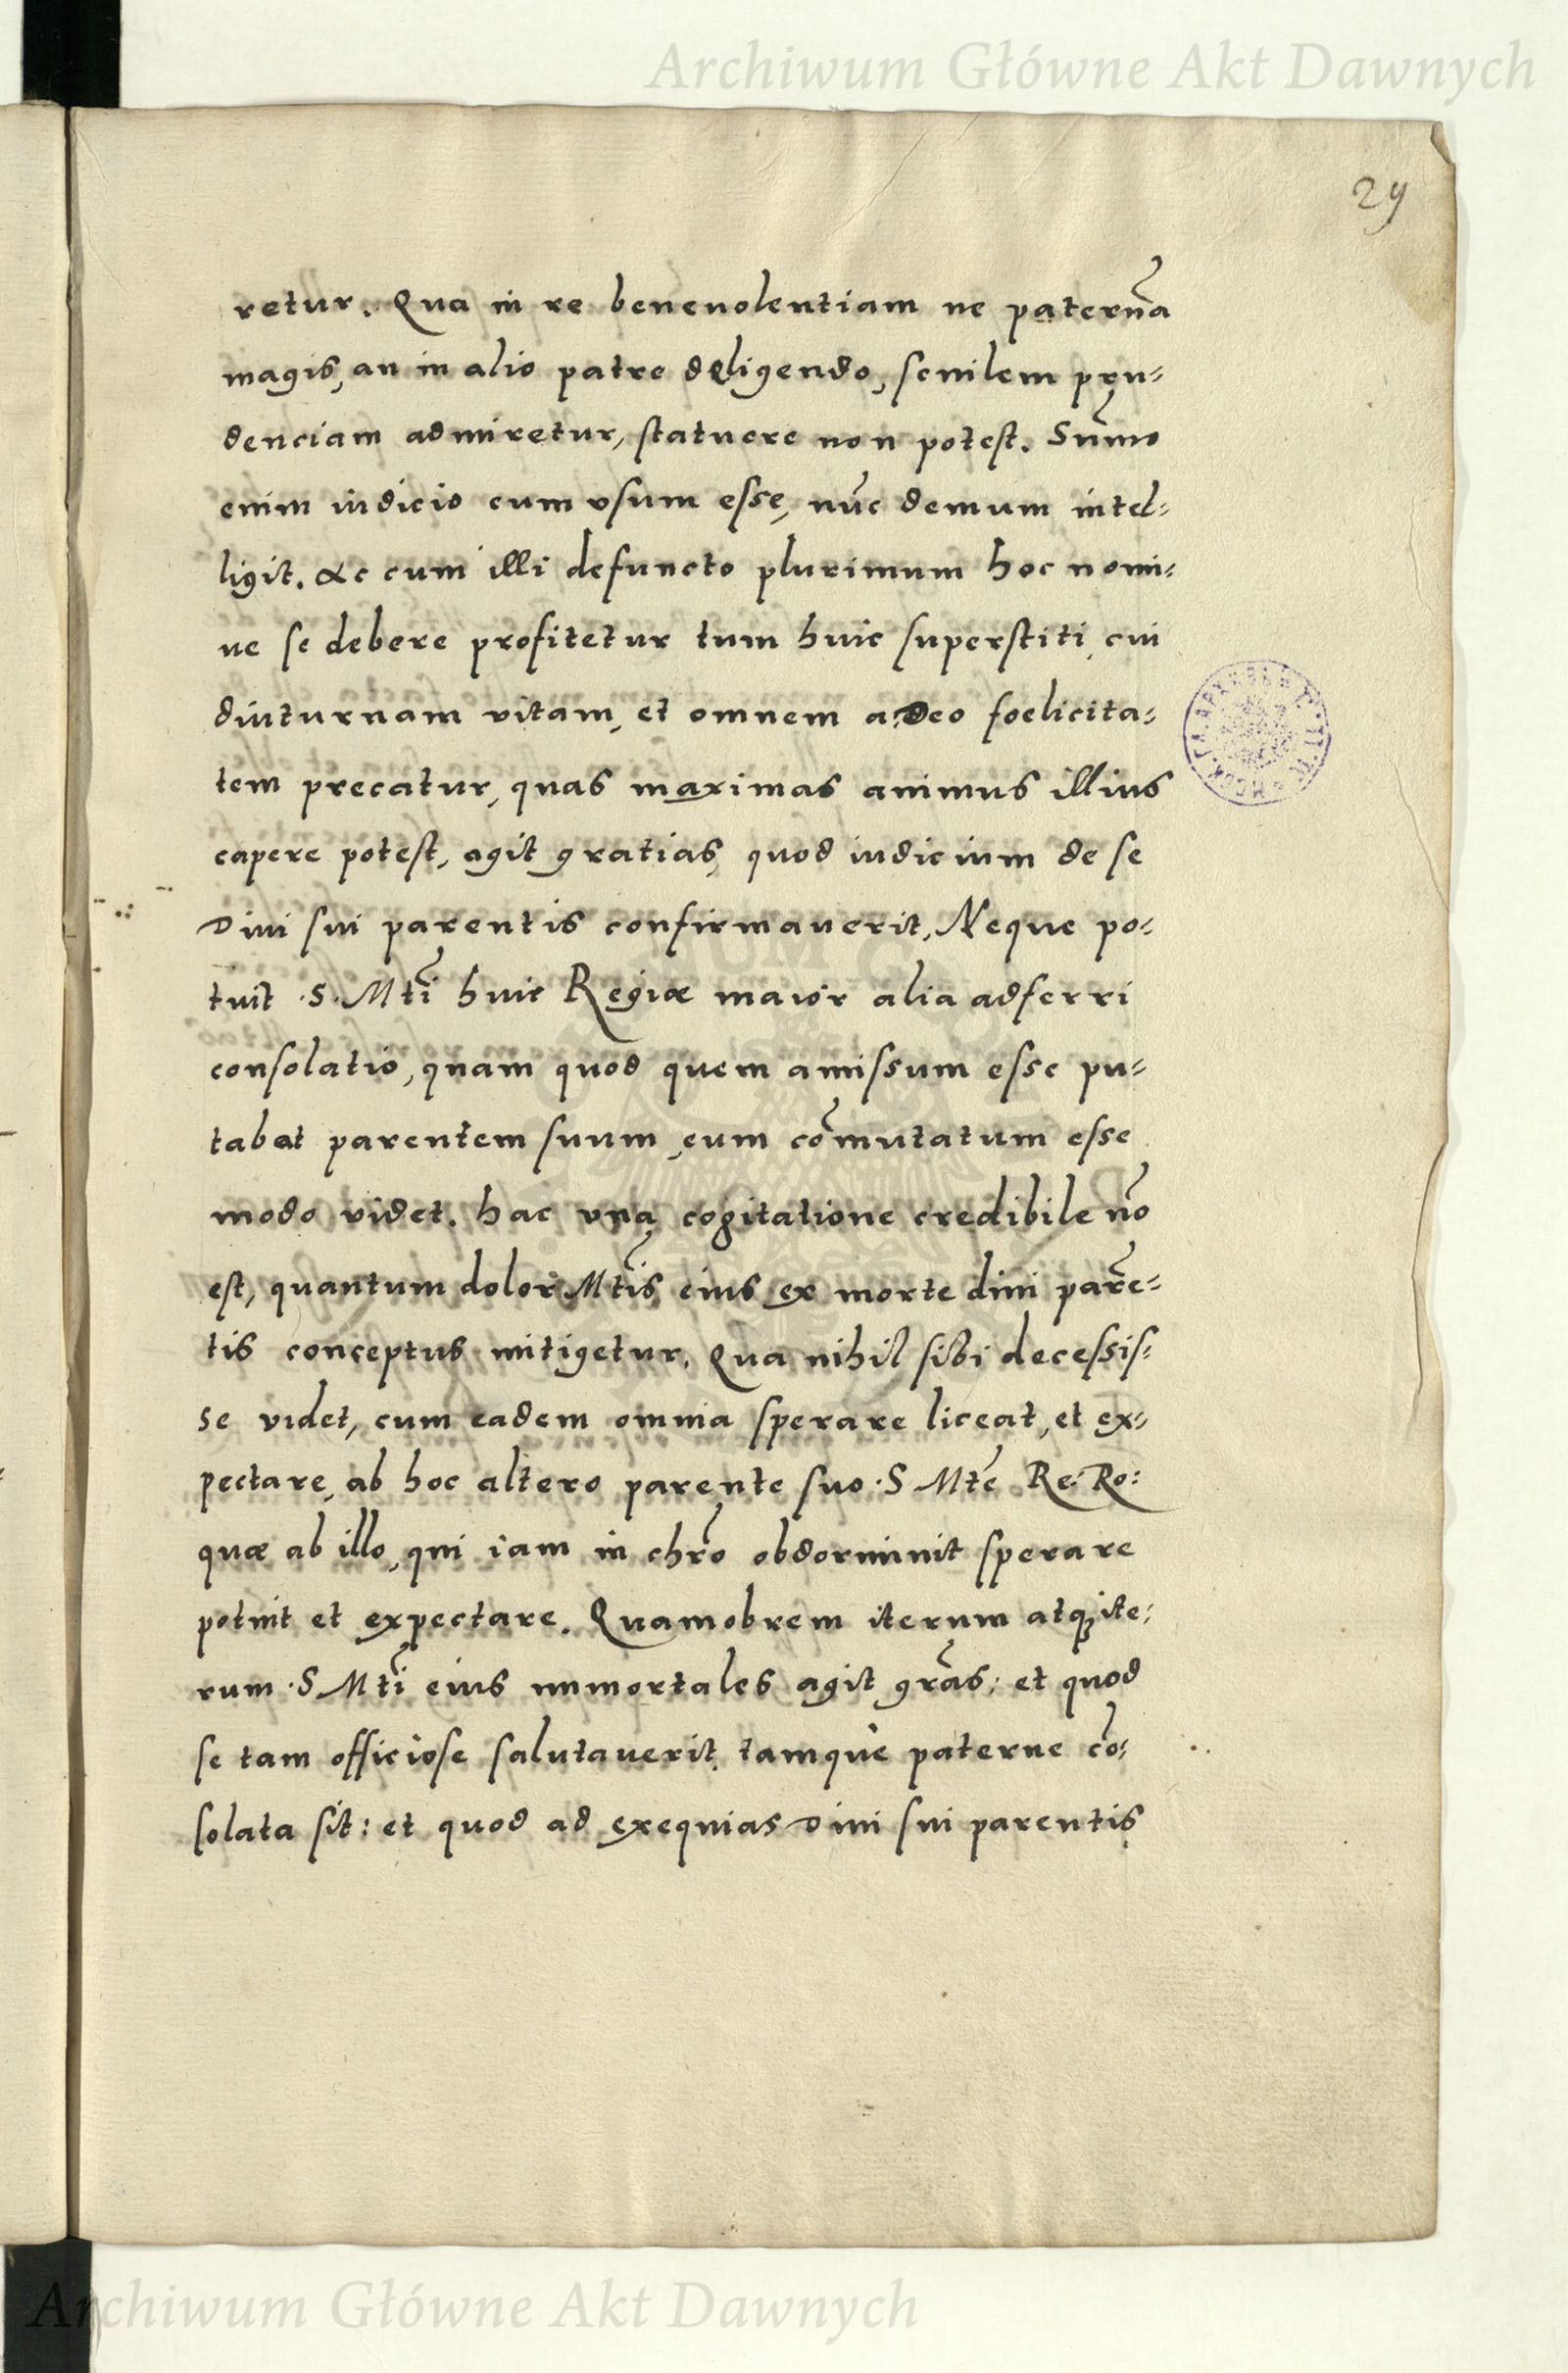 Archiwum Główne Akt Dawnych
29
retur. Qua in re beneuolentiam ne paternã
magis, an in alio patre deligendo, senilem pru-
denciam admiretur, statuere non potest. Sũmo
enim iudicio eum vsum esse, nũc demum intel-
ligit. Ac cum illi defuncto plurimum hoc nomi-
ne se debere profitetur tum huic superstiti, cui
diuturnam vitam, et omnem a Deo foelicita-
tem precatur, quas maximas animus illius
capere potest, agit gratias, quod iudicium de se
Diui sui parentis confirmauerit, Neque po-
tuit .S. Mti huic Regiæ maior alia adferri
consolatio, quam quod quem amissum esse pu-
tabat parentem suum, eum cõmutatum esse
modo videt. hac vna cogitatione credibile nõ
est, quantum dolor Mtis eius ex morte diui parẽ-
tis conceptus mitigetur. Qua nihil sibi decessis-
se videt, cum eadem omnia sperare liceat, et ex-
pectare, ab hoc altero parente suo .S Mte Re: Ro:
quæ ab illo, qui iam in chrõ obdormiuit sperare
potuit et expectare. Quamobrem iterum atq; ite-
rum .S Mti eius immortales agit grãs: et quod
se tam officiose salutauerit, tamque paterne cõ-
solata sit: et quod ad exequias Diui sui parentis
Archiwum Główne Akt Dawnych